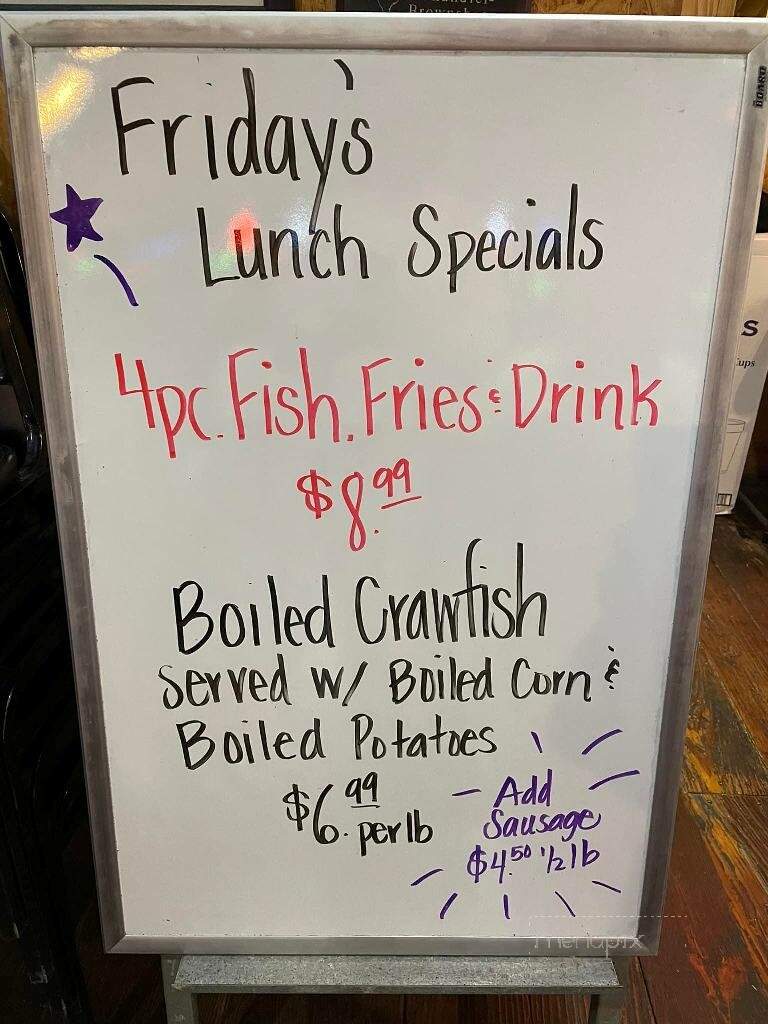 Brownsb
BOARD
Friday's
Lunch Specials
4pc. Fish, Fries & Drink
$8.99
Boiled Crawfish
served w/ Boiled Corn &
Boiled Potatoes
$6.99 per lb
Add
Sausage
$4.50 1/2 lb
S
Cups
menupix